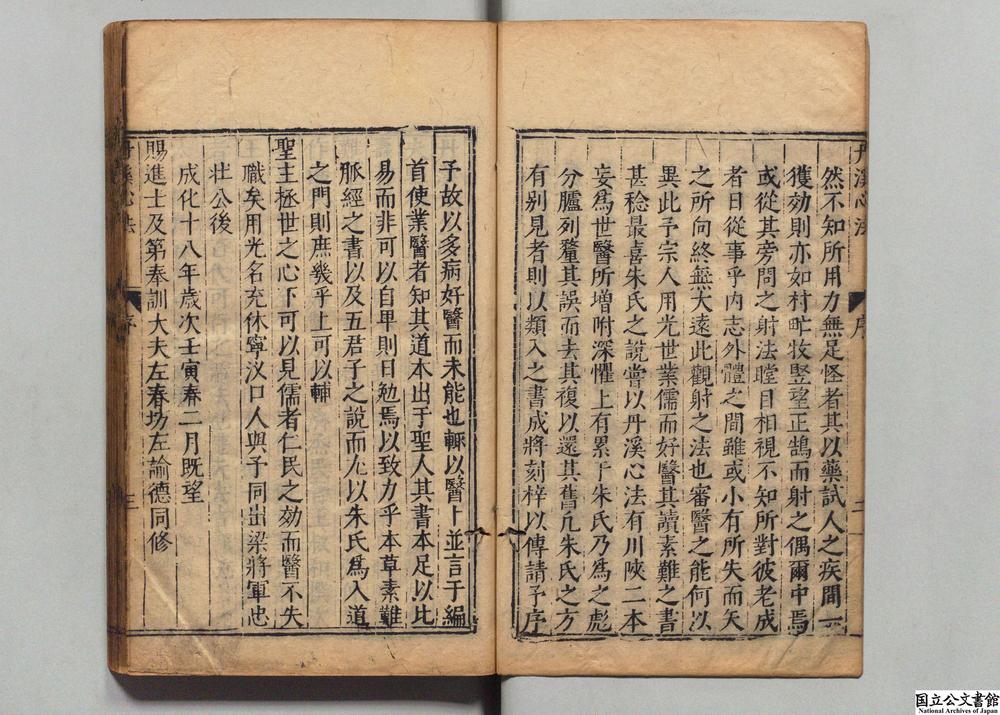 丹溪心法 序 二
然不知所用力無足怪者其以藥試人之疾間一
獲効則亦如村甿牧豎望正鵠而射之偶爾中焉
或從其旁問之射法瞠目相視不知所對彼老成
者日從事乎内志外體之間雖或小有所失而矢
之所向終無大遠此觀射之法也審醫之能何以
異此予宗人用光世業儒而好醫其讀素難之書
甚稔最喜朱氏之說嘗以丹溪心法有川陜二本
妄爲世醫所增附深懼上有累于朱氏乃爲之彪
分臚列釐其誤而去其複以還其舊凡朱氏之方
有别見者則以類入之書成將刻梓以傳請予序
予故以多病好醫而未能也輒以醫卜並言于編
首使業醫者知其道本出于聖人其書本足以比
易而非可以自卑則日勉焉以致力乎本草素難
脉經之書以及五君子之說而尤以朱氏爲入道
之門則庶幾乎上可以輔
聖主拯世之心下可以見儒者仁民之効而醫不失
職矣用光名充休寧汊口人與予同出梁將軍忠
壯公後
成化十八年歲次壬寅春二月既望
賜進士及第奉訓大夫左春坊左諭德同修
丹溪心法 序 三
国立公文書館
National Archives of Japan